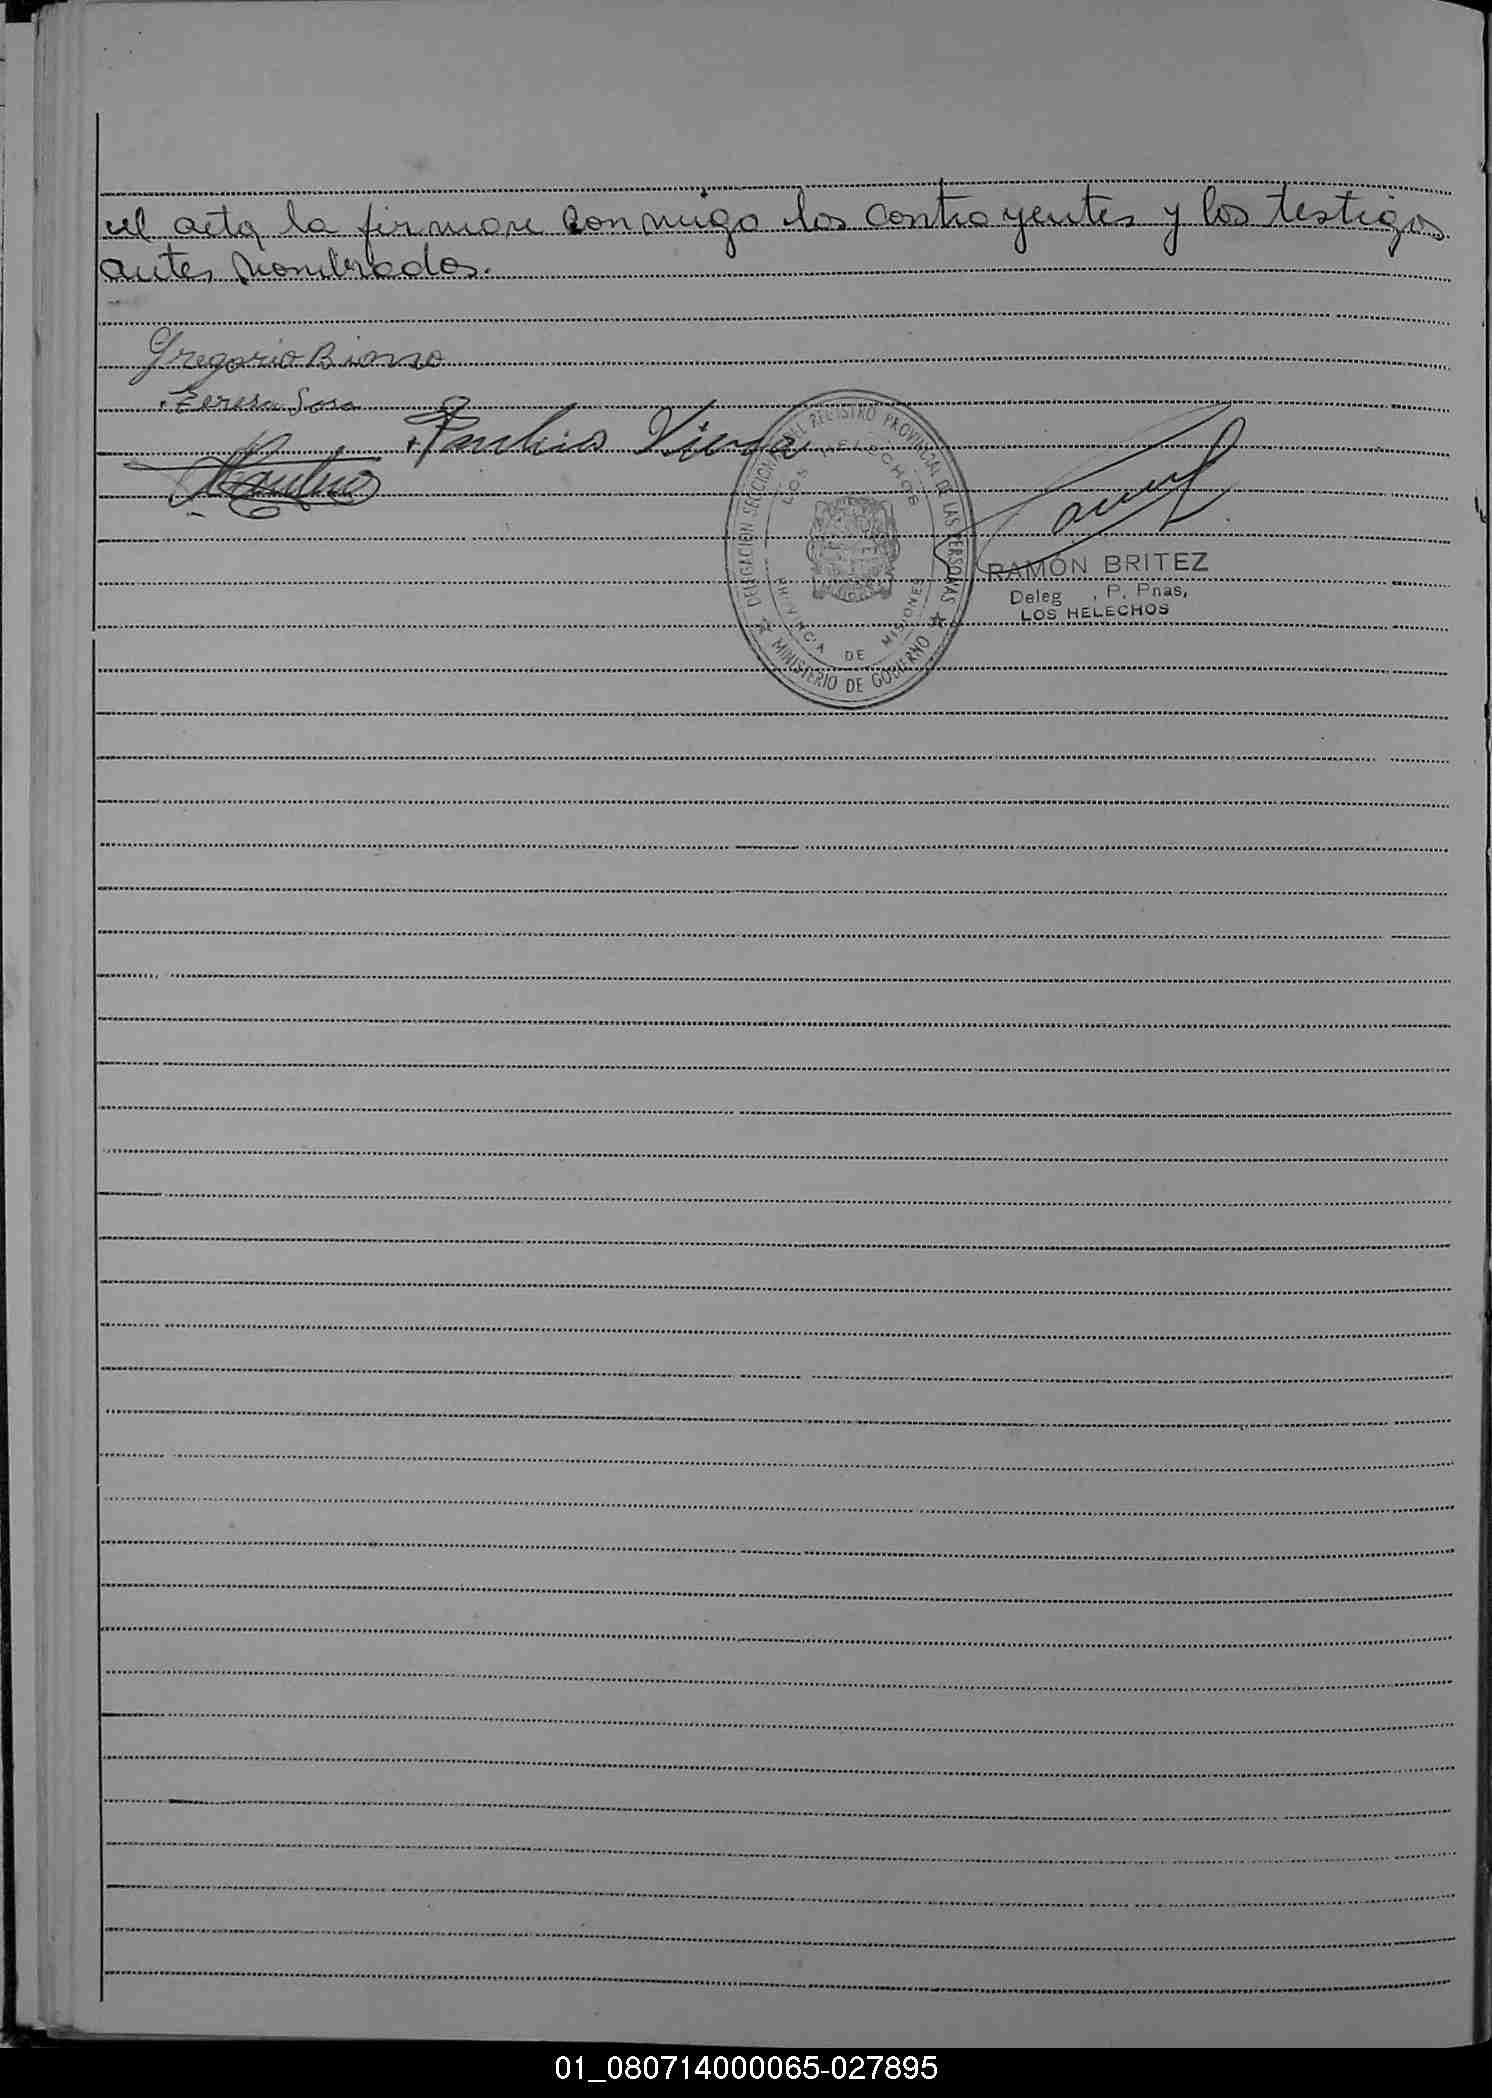 el acta la firman conmigo los contrayentes y los testigos
antes nombrados.
Gregorio
Teresa Sosa
Vierra
DELEGACION SECCIONAL DEL REGISTRO PROVINCIAL DE LAS PERSONAS
LOS HELECHOS
PROVINCIA DE MISIONES
MINISTERIO DE GOBIERNO
RAMÓN BRITEZ
Deleg , P. Pnas,
LOS HELECHOS
01_080714000065-027895